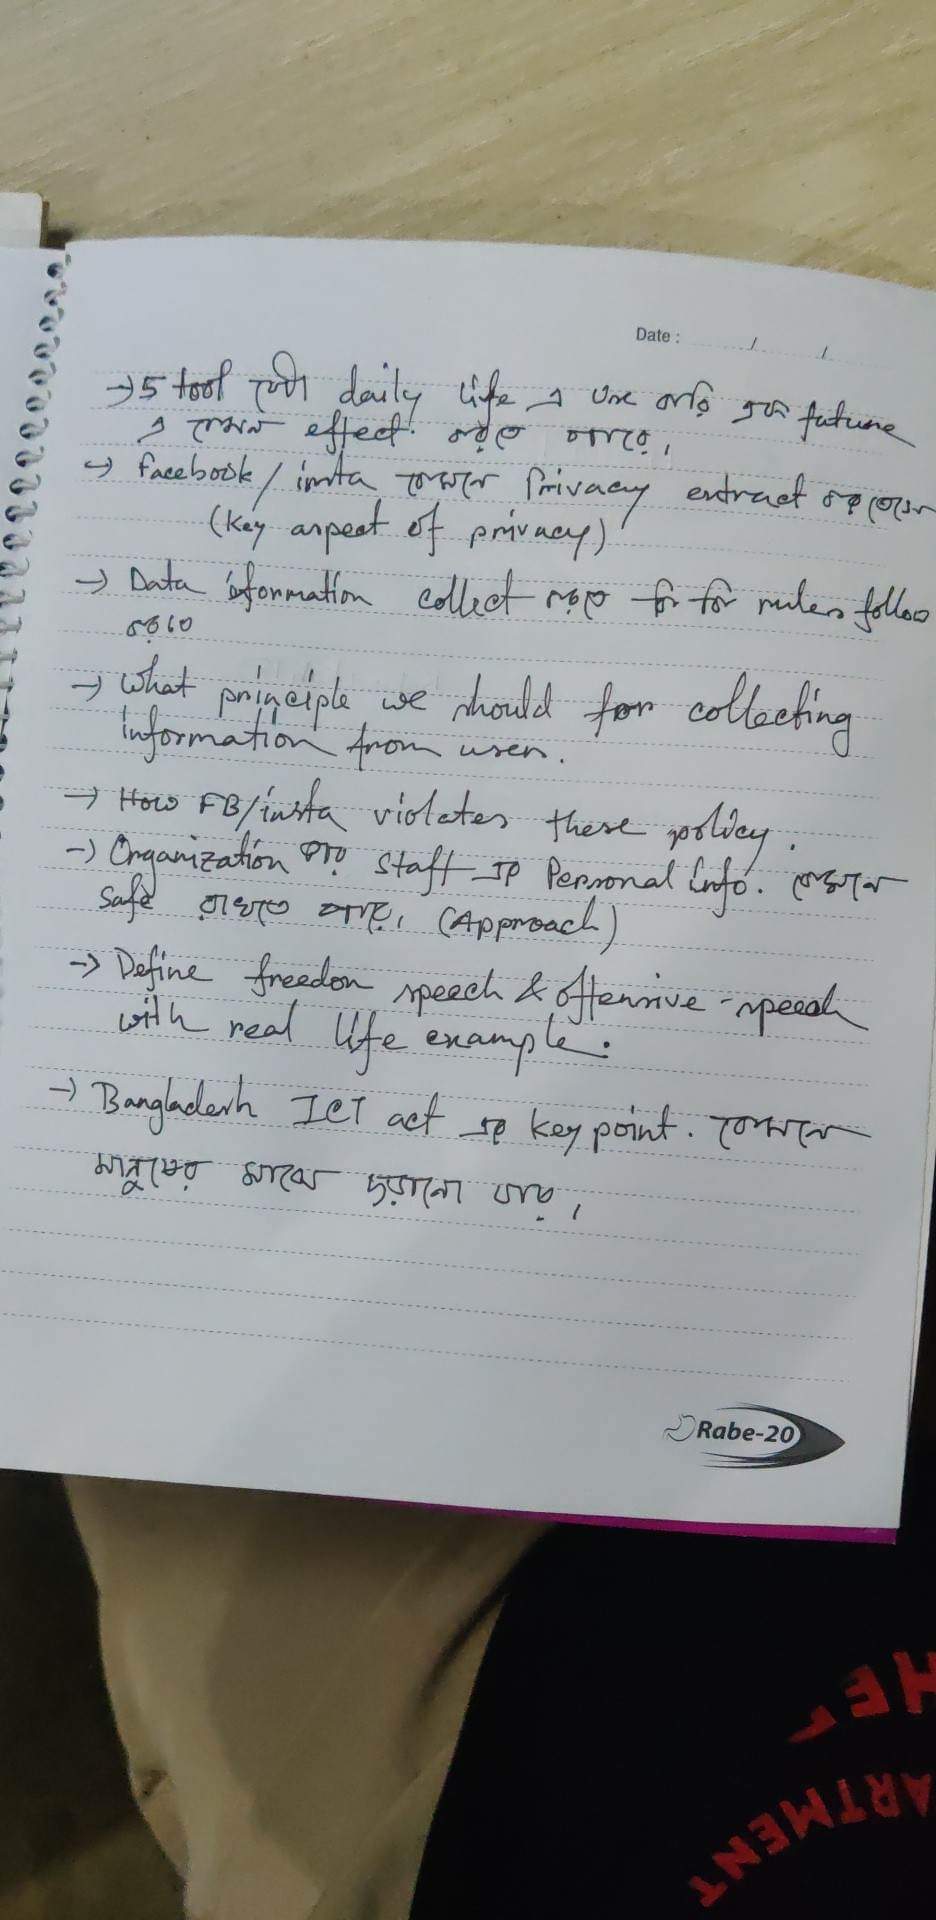 Date : / /
→ 5 tool যেটা daily life এ use করি এবং future
এ কেমন effect করতে পারে।
→ facebook / insta কেমনে Privacy extract
(Key aspect of privacy)
→ Data information collect করতে কি কি rules follow
→ What principle we should for collecting
information from users.
→ How FB/insta violates these policy.
→ Organization staff এর Personal info. কেমনে
safe রাখতে পারে। (Approach)
→ Define freedon speech & offensive-speech
with real life example.
→ Bangladesh ICT act এর key point. কেমনে
মানুষের মাঝে ছড়ানো যায়।
Rabe-20
HE
ARTMENT